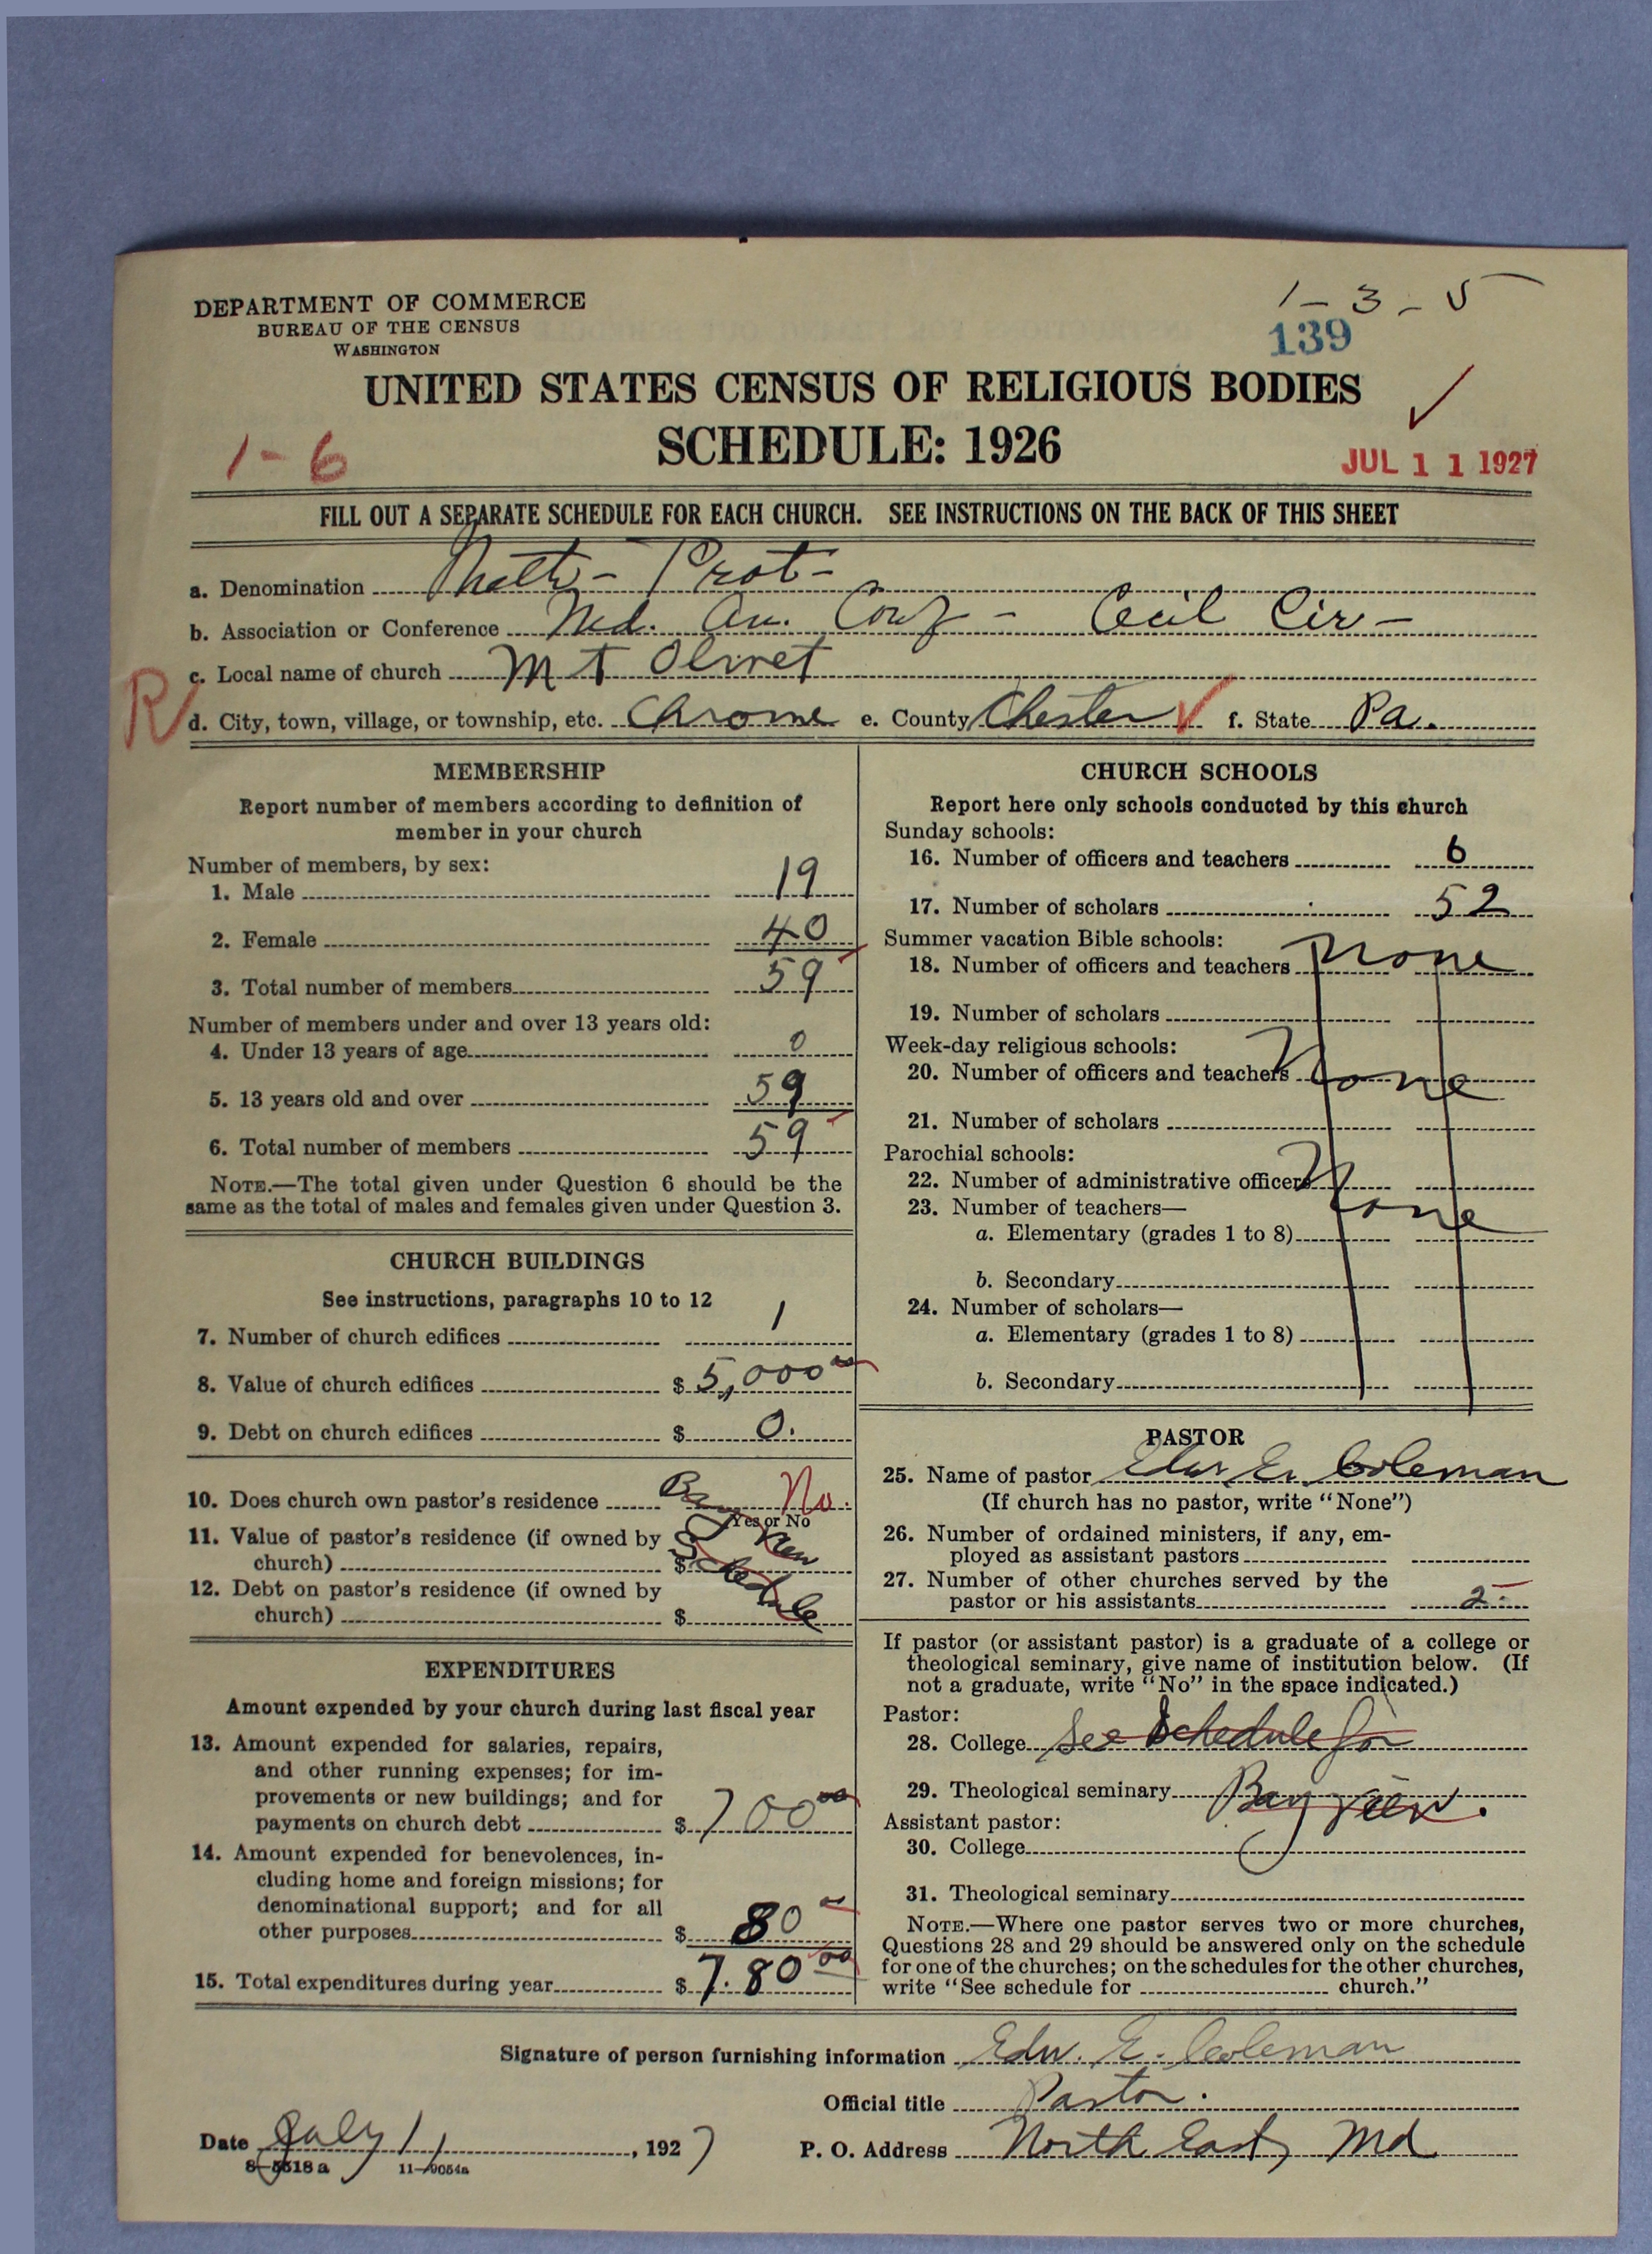 1 - 3 - 5
DEPARTMENT OF COMMERCE
BUREAU OF THE CENSUS
WASHINGTON
139
UNITED STATES CENSUS OF RELIGIOUS BODIES
SCHEDULE: 1926
1-6
JUL 11 1927
FILL OUT A SEPARATE SCHEDULE FOR EACH CHURCH. SEE INSTRUCTIONS ON THE BACK OF THIS SHEET
a. Denomination Meth- Prot-
b. Association or Conference Md. An. Conf - Cecil Cir-
c. Local name of church Mt Olivet
R
d. City, town, village, or township, etc. Chrome e. County Chester f. State Pa.
MEMBERSHIP
Report number of members according to definition of
member in your church
Number of members, by sex:
1. Male 19
2. Female 40
3. Total number of members 59
Number of members under and over 13 years old:
4. Under 13 years of age 0
5. 13 years old and over 59
6. Total number of members 59
NOTE.—The total given under Question 6 should be the
same as the total of males and females given under Question 3.
CHURCH BUILDINGS
See instructions, paragraphs 10 to 12
7. Number of church edifices 1
8. Value of church edifices $ 5,000 00
9. Debt on church edifices $ 0.
10. Does church own pastor's residence Bay No.
Yes or No
View
11. Value of pastor's residence (if owned by
church) $
Schedule
12. Debt on pastor's residence (if owned by
church) $
EXPENDITURES
Amount expended by your church during last fiscal year
13. Amount expended for salaries, repairs,
and other running expenses; for im-
provements or new buildings; and for
payments on church debt $ 700 00
14. Amount expended for benevolences, in-
cluding home and foreign missions; for
denominational support; and for all
other purposes $ 80 00
15. Total expenditures during year $ 7.80 00
CHURCH SCHOOLS
Report here only schools conducted by this church
Sunday schools:
16. Number of officers and teachers 6
17. Number of scholars 52
Summer vacation Bible schools:
18. Number of officers and teachers None
19. Number of scholars
Week-day religious schools:
20. Number of officers and teachers None
21. Number of scholars
Parochial schools:
22. Number of administrative officers None
23. Number of teachers—
a. Elementary (grades 1 to 8)
b. Secondary
24. Number of scholars—
a. Elementary (grades 1 to 8)
b. Secondary
PASTOR
25. Name of pastor Edw. E. Coleman
(If church has no pastor, write "None")
26. Number of ordained ministers, if any, em-
ployed as assistant pastors
27. Number of other churches served by the
pastor or his assistants 2
If pastor (or assistant pastor) is a graduate of a college or
theological seminary, give name of institution below. (If
not a graduate, write "No" in the space indicated.)
Pastor:
28. College See Schedule for
29. Theological seminary Bay View.
Assistant pastor:
30. College
31. Theological seminary
NOTE.—Where one pastor serves two or more churches,
Questions 28 and 29 should be answered only on the schedule
for one of the churches; on the schedules for the other churches,
write "See schedule for church."
Signature of person furnishing information Edw. E. Coleman
Official title Pastor.
Date July 11, 1927 P. O. Address North East, Md
8-5518 a 11-9054a